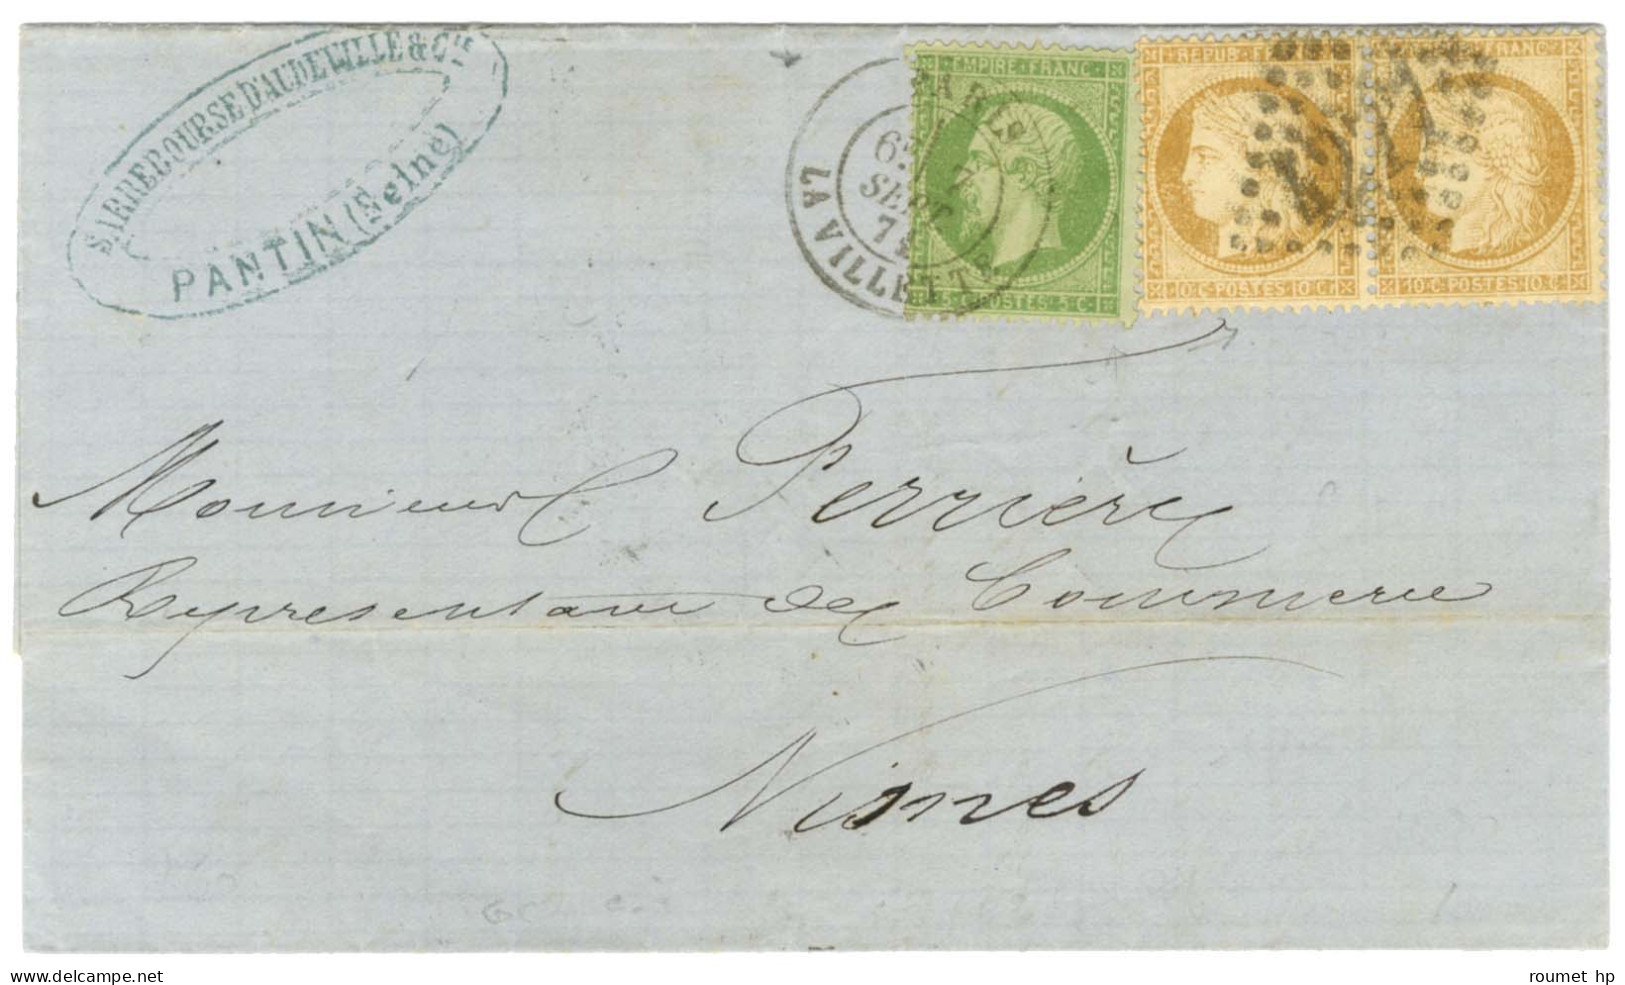 SARREBOURSE D'AUDEVILLE & CIE
PANTIN (Seine)
PARIS
6E
SEPT
LA VILLETTE
EMPIRE FRANC
5 C POSTES 5 C
REPUB FRANC
10 C POSTES 10 C
FRANC
10 C POSTES 10 C
Monsieur Perrière
Représentant de Commerce
Nismes
roumet hp
www.delcampe.net